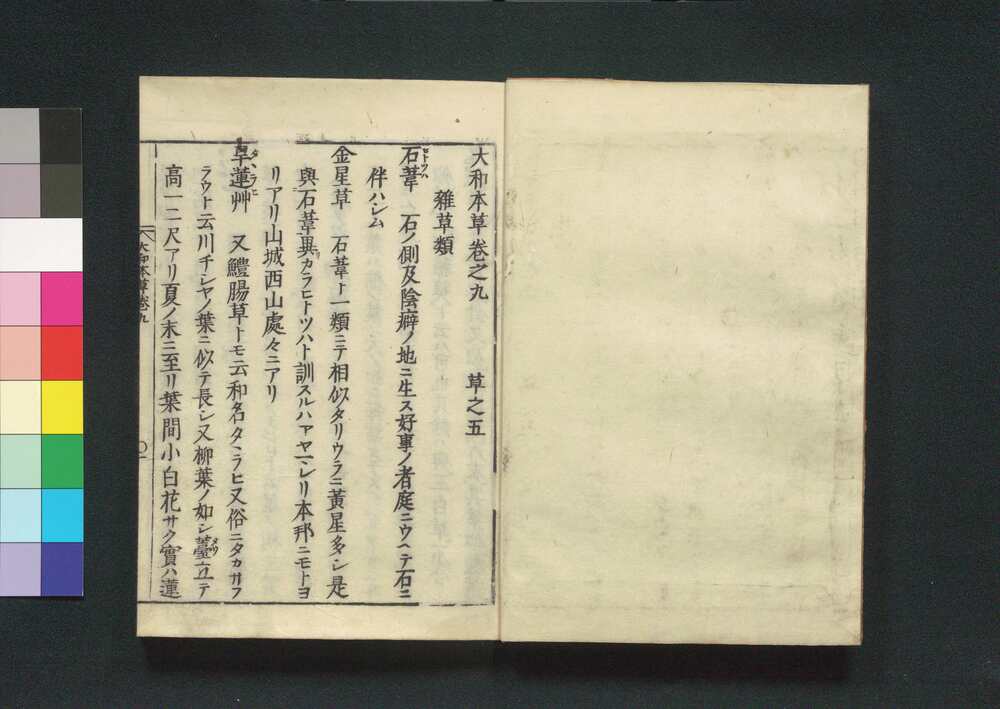 大和本草卷之九　草之五
雜草類
石葦 ヒトツハ 石ノ側及陰癖ノ地ニ生ス好事ノ者庭ニウヘテ石ニ
伴ハシム
金星草 石葦ト一類ニテ相似タリウラニ黃星多シ是
與石葦異カラヒトツハト訓スルハアヤマレリ本邦ニモトヨ
リアリ山城西山處々ニアリ
旱蓮艸 又鱧腸草トモ云和名タヽラヒ又俗ニタカサフ
ラウト云川チシヤノ葉ニ似テ長シ又柳葉ノ如シ薹立テ
高一二尺アリ夏ノ末ニ至リ葉間小白花サク實ハ蓮
大和本草卷九